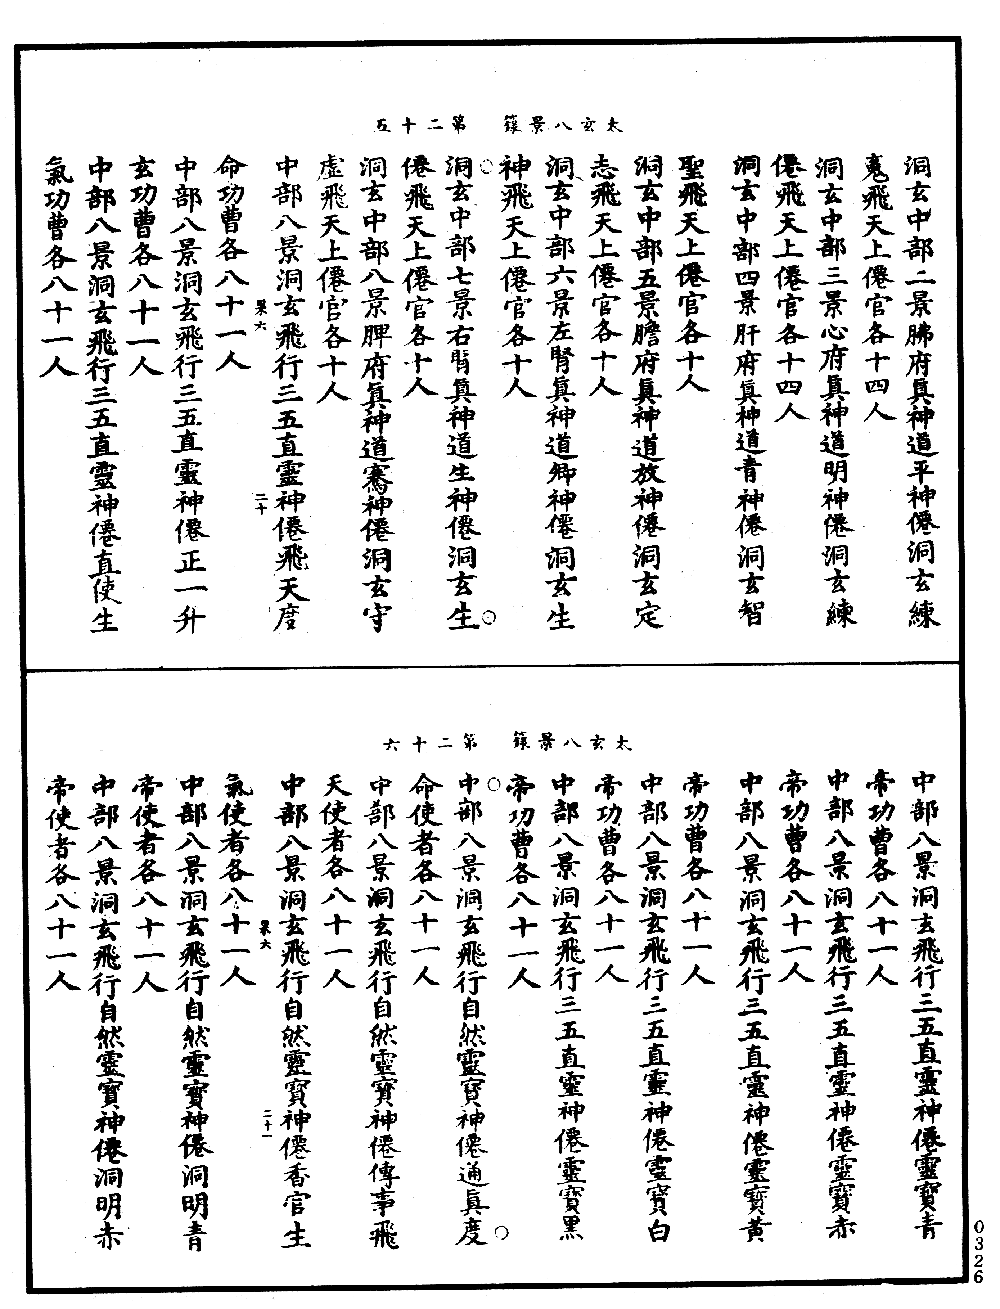 太玄八景籙　第二十五
洞玄中部二景肺府真神道平神僊洞玄練
魂飛天上僊官各十四人
洞玄中部三景心府真神道明神僊洞玄練
僊飛天上僊官各十四人
洞玄中部四景肝府真神道青神僊洞玄智
聖飛天上僊官各十人
洞玄中部五景膽府真神道放神僊洞玄定
志飛天上僊官各十人
洞玄中部六景左腎真神道卿神僊洞玄生
神飛天上僊官各十人
洞玄中部七景右腎真神道生神僊洞玄生
僊飛天上僊官各十人
洞玄中部八景脾府真神道騫神僊洞玄守
虛飛天上僊官各十人
景六　二十
中部八景洞玄飛行三五直靈神僊飛天度
命功曹各八十一人
中部八景洞玄飛行三五直靈神僊正一升
玄功曹各八十一人
中部八景洞玄飛行三五直靈神僊直使生
氣功曹各八十一人
太玄八景籙　第二十六
中部八景洞玄飛行三五直靈神僊靈寶青
帝功曹各八十一人
中部八景洞玄飛行三五直靈神僊靈寶赤
帝功曹各八十一人
中部八景洞玄飛行三五直靈神僊靈寶黃
帝功曹各八十一人
中部八景洞玄飛行三五直靈神僊靈寶白
帝功曹各八十一人
中部八景洞玄飛行三五直靈神僊靈寶黑
帝功曹各八十一人
中部八景洞玄飛行自然靈寶神僊通真度
命使者各八十一人
中部八景洞玄飛行自然靈寶神僊傳事飛
天使者各八十一人
中部八景洞玄飛行自然靈寶神僊香官生
景六　二十一
氣使者各八十一人
中部八景洞玄飛行自然靈寶神僊洞明青
帝使者各八十一人
中部八景洞玄飛行自然靈寶神僊洞明赤
帝使者各八十一人
0326